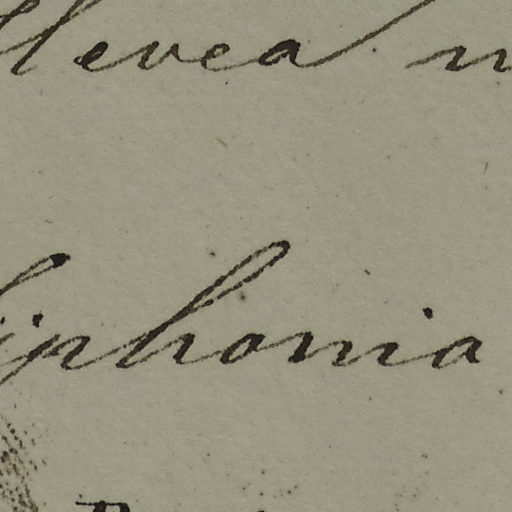 Hevea
iphonia